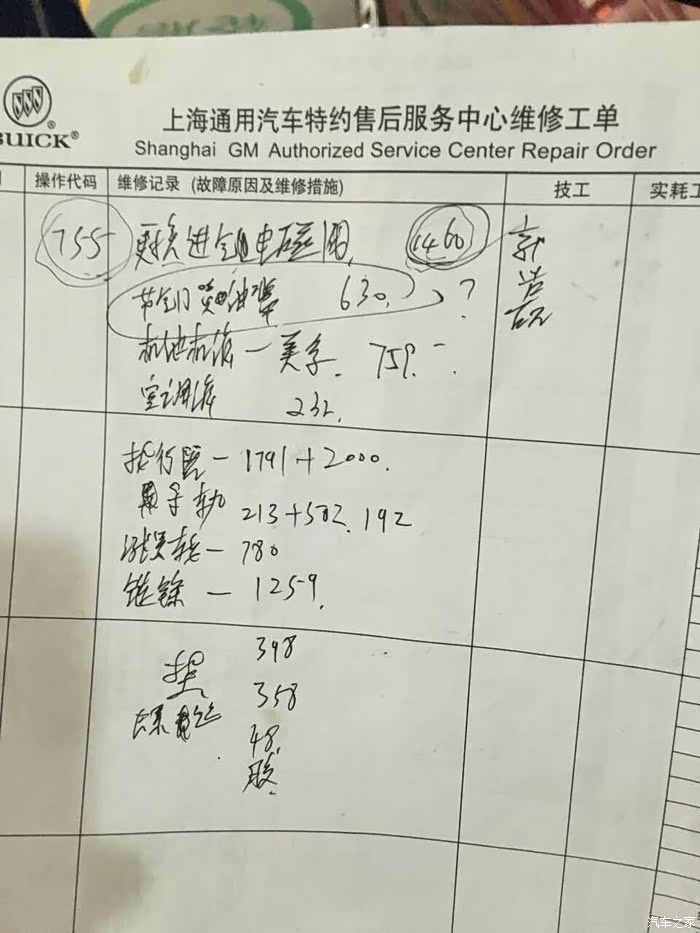 BUICK
上海通用汽车特约售后服务中心维修工单
Shanghai GM Authorized Service Center Repair Order
操作代码 维修记录 (故障原因及维修措施) 技工 实耗工
755 更换进气电磁阀 1460
节气门 喷油嘴 630. ?
机滤机油一 759.-
空调滤 232.
执行器一1791+2000.
213+582.192
涨紧轮一780
链条 一 1259.
垫 398
358
螺丝
48
胶
汽车之家